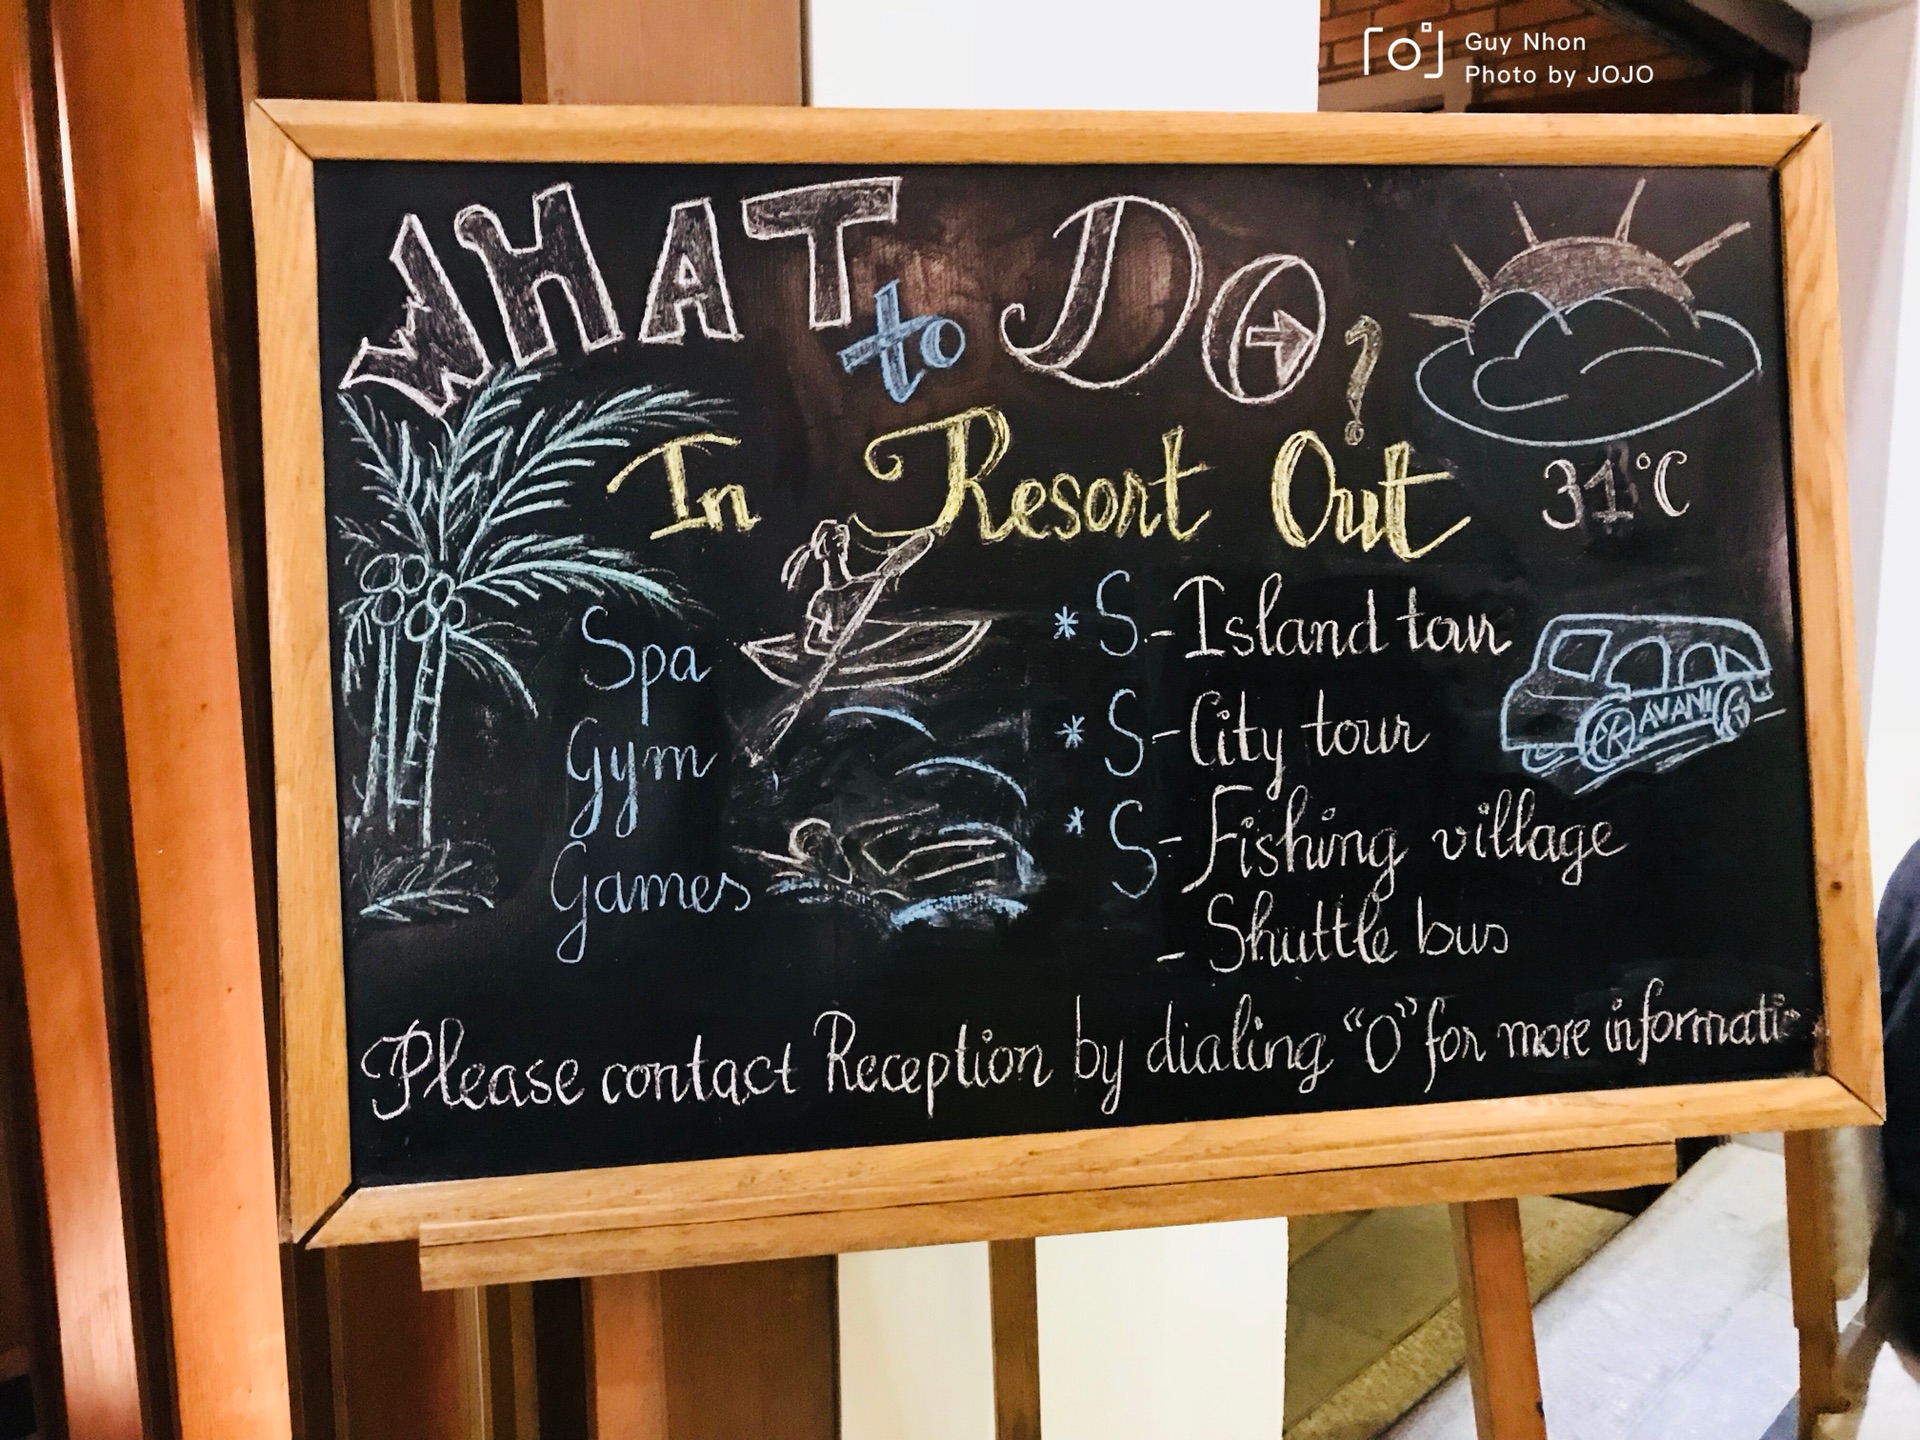 Guy Nhon
Photo by JOJO
WHAT to DO?
In Resort Out
31°C
Spa
Gym
Games
* S - Island tour
* S - City tour
* S - Fishing village
- Shuttle bus
AVANI
Please contact Reception by dialing "0" for more informatio